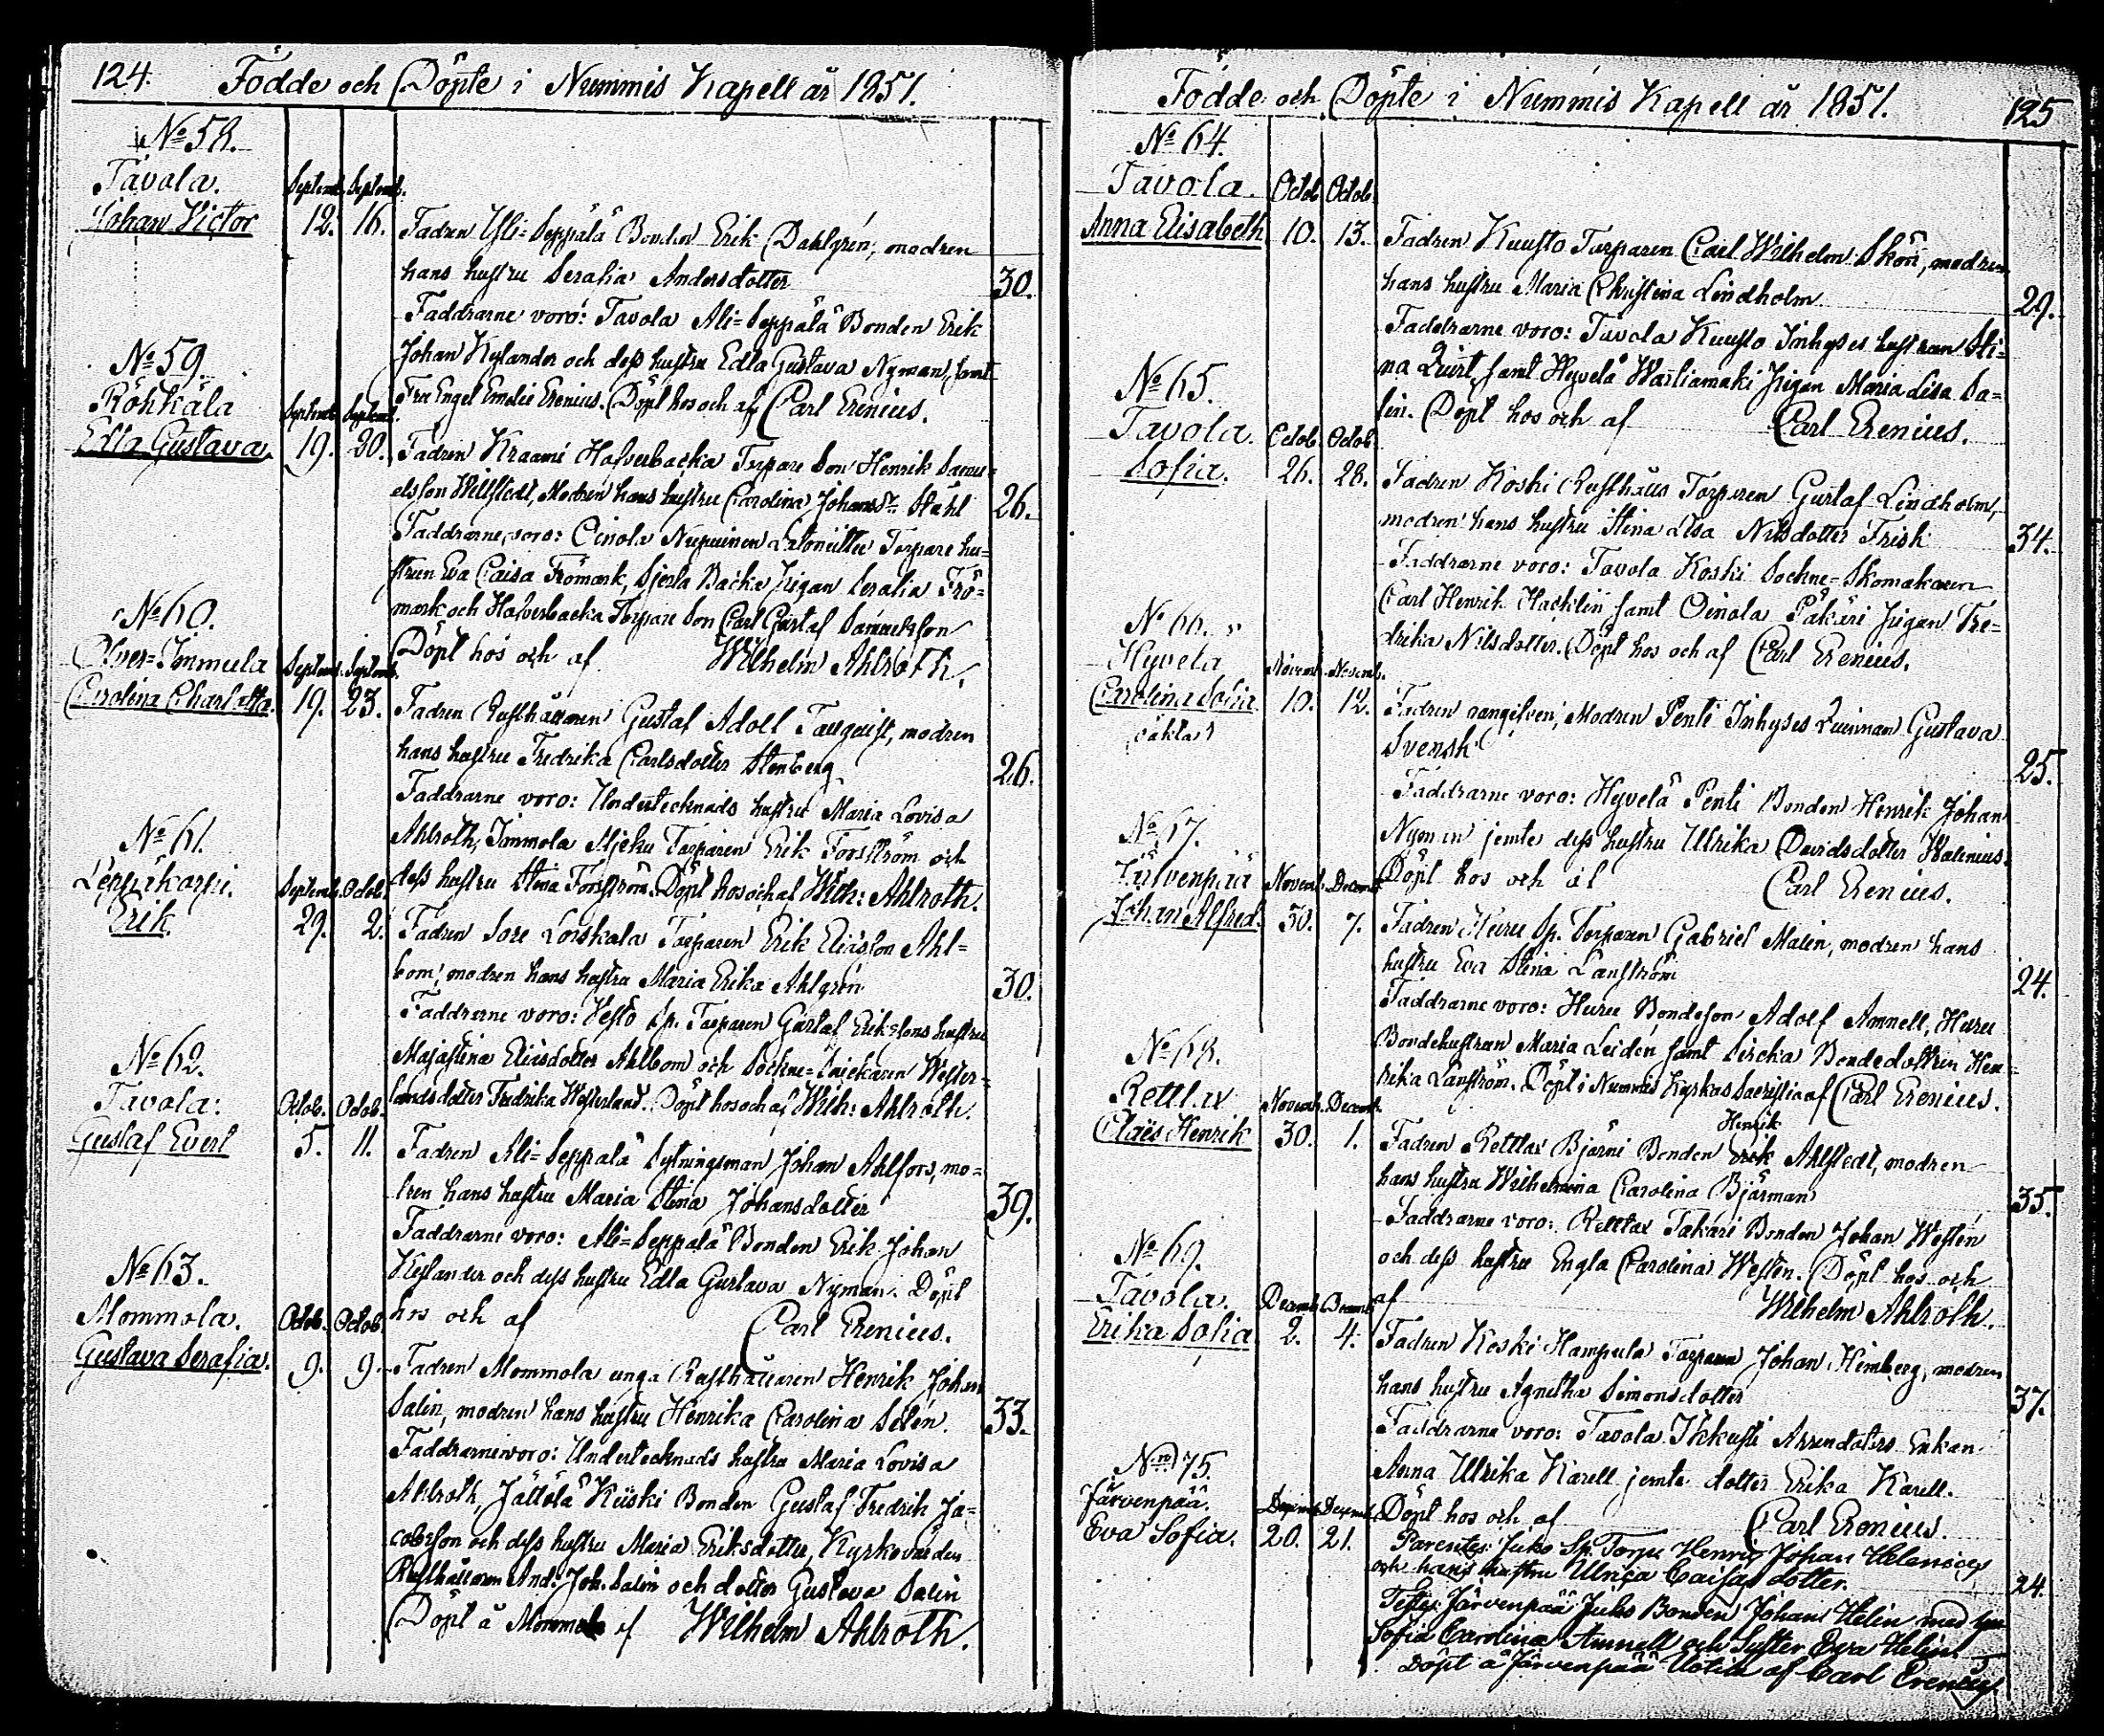 124. Födde och Döpte i Nummis Kapell år 1851.
No 58.
Tavola.
Johan Victor
Septemb. Septemb.
12. 16.
Fadren Yli=Seppälä Bonden Erik Dahlgrén, modren
hans hustru Serafia Andersdotter
30.
Faddrarne voro: Tavola Ali=Seppälä Bonden Erik
Johan Kylander och dess hustru Edla Gustava Nyman, samt
Fru Engel Emelie Erenius. Döpt hos och af Carl Erenius.
No 59.
Röhkälä
Edla Gustava
Septemb. Septemb.
19. 20.
Fadren Kraami Hafverbacka Torpare Son Henrik Samu=
elsson Willstedt, Modren hans hustru Carolina Johansdr Ståhl
26.
Faddrarne voro: Oinola Torpare hu=
strun Eva Caisa Frömark, Backa Pigan Serafia Frö=
mark och Hafverbacka Torpare Son Carl Gustaf Samuelsson
Döpt hos och af Wilhelm Ahlroth.
No 60.
Öfver=Immula
Carolina Charlotta
Septemb. Septemb.
19. 23.
Fadren Rusthållaren Gustaf Adolf Tallquist, modren
hans hustru Fredrika Carlsdotter Stenberg
26.
Faddrarne voro: Undertecknads hustru Maria Lovisa
Ahlroth, Immola Torparen Erik Forsström och
dess hustru Stina Forsström. Döpt hos och af Wilh: Ahlroth.
No 61.
Leppäkorpi.
Erik
Septemb. Octob.
29. 2.
Fadren Sore Lorskala Torparen Erik Eliasson Ahl=
bom, modren hans hustru Maria Erika Ahlgrén
30.
Faddrarne voro: Sp. Torparen Gustaf Erikssons hustru
Majastina Eliasdotter Ahlbom och Sockne=Snickaren Wester=
lands dotter Fredrika Westerland. Döpt hos och af Wilh: Ahlroth.
No 62.
Tavola:
Gustaf Evert
Octob. Octob.
5. 11.
Fadren Ali=Seppälä Sytningsman Johan Ahlfors, mo=
dren hans hustru Maria Stina Johansdotter
39.
Faddrarne voro: Ali=Seppälä Bonden Erik Johan
Kylander och dess hustru Edla Gustava Nyman. Döpt
hos och af Carl Erenius.
No 63.
Mommola.
Gustava Serafia.
Octob. Octob.
9. 9.
Fadren Mommola unga Rusthållaren Henrik Johan
Salin, modren hans hustru Henrika Carolina Silén.
33.
Faddrarne voro: Undertecknads hustru Maria Lovisa
Ahlroth, Jättölä Kiiski Bonden Gustaf Fredrik Ja=
cobsson och dess hustru Maria Eriksdotter, Kyrkovärden
Rusthållaren And: Joh. Salin och dotter Gustava Salin
Döpt å Mommola af Wilhelm Ahlroth.
Födde och Döpte i Nummis Kapell år 1851. 125
No 64.
Tavola.
Anna Elisabeth
Octob. Octob.
10. 13.
Fadren Kuusto Torparen Carl Wilhelm Skön, modren
hans hustru Maria Christina Lindholm.
29.
Faddrarne voro: Tavola Kuusto Inhyses hustrun Sti=
na Qvist, samt Hyvelä Pigan Maria Lisa Sa=
lin. Döpt hos och af Carl Erenius.
No 65.
Tavola.
Sofia.
Octob. Octob.
26. 28.
Fadren Koski Rusthålls Torparen Gustaf Lindholm,
modren hans hustru Stina Lisa Nilsdotter Frisk
34.
Faddrarne voro: Tavola Koski Sockne=Skomakaren
Carl Henrik Hacklin samt Oinola Päkäri Pigan Fre=
drika Nilsdotter. Döpt hos och af Carl Erenius.
No 66.
Hyvelä
Carolina Sofia.
oäkta
Novemb. Novemb.
10. 12.
Fadren oangifven, Modren Penti Inhyses Qvinnan Gustava
Svensk
25.
Faddrarne voro: Hyvelä Penti Bonden Henrik Johan
Nyman jemte dess hustru Ulrika Davidsdotter Walenius.
Döpt hos och af Carl Erenius.
No 67.
Järvenpää
Johan Alfred.
Novemb. Decemb.
30. 7.
Fadren Huru Sp. Torparen Gabriel Malin, modren hans
hustru Eva Stina Lanström
24.
Faddrarne voro: Huru Bondeson Adolf Amnell, Huru
Bondehustrun Maria Leidén samt Sirola Bondedottren Hen=
rika Lanström. Döpt i Nummis Kyrkos Sacristia af Carl Erenius.
No 68.
Rettlax
Claës Henrik
Novemb. Decemb.
30. 1.
Henrik
Fadren Rettlax Bjärni Bonden Erik Ahlstedt, modren
hans hustru Wilhelmina Carolina Bjärman
35.
Faddrarne voro: Rettlax Takari Bonden Johan Westén
och dess hustru Engla Carolina Westén. Döpt hos och
af Wilhelm Ahlroth.
No 69.
Tavola.
Erika Sofia
Decemb. Decemb.
2. 4.
Fadren Koski Hampula Torparen Johan Himberg, modren
hans hustru Agnetha Simonsdotter
37.
Faddrarne voro: Tavola Arrendators Enkan
Anna Ulrika Karell jemte dotter Erika Karell.
Döpt hos och af Carl Erenius.
No 75.
Järvenpää.
Eva Sofia.
Decemb. Decemb.
20. 21.
Parentes: Juko Sp. Torp. Henric Johan Helenius
och hans hustru Ulrica Caisas dotter.
24.
Testes: Järvenpää Juko Bonden Johan Helin med hu
Sofia Carolina Amnell och Syster Eva Helin
Döpt å Järvenpää Uotila af Carl Erenius